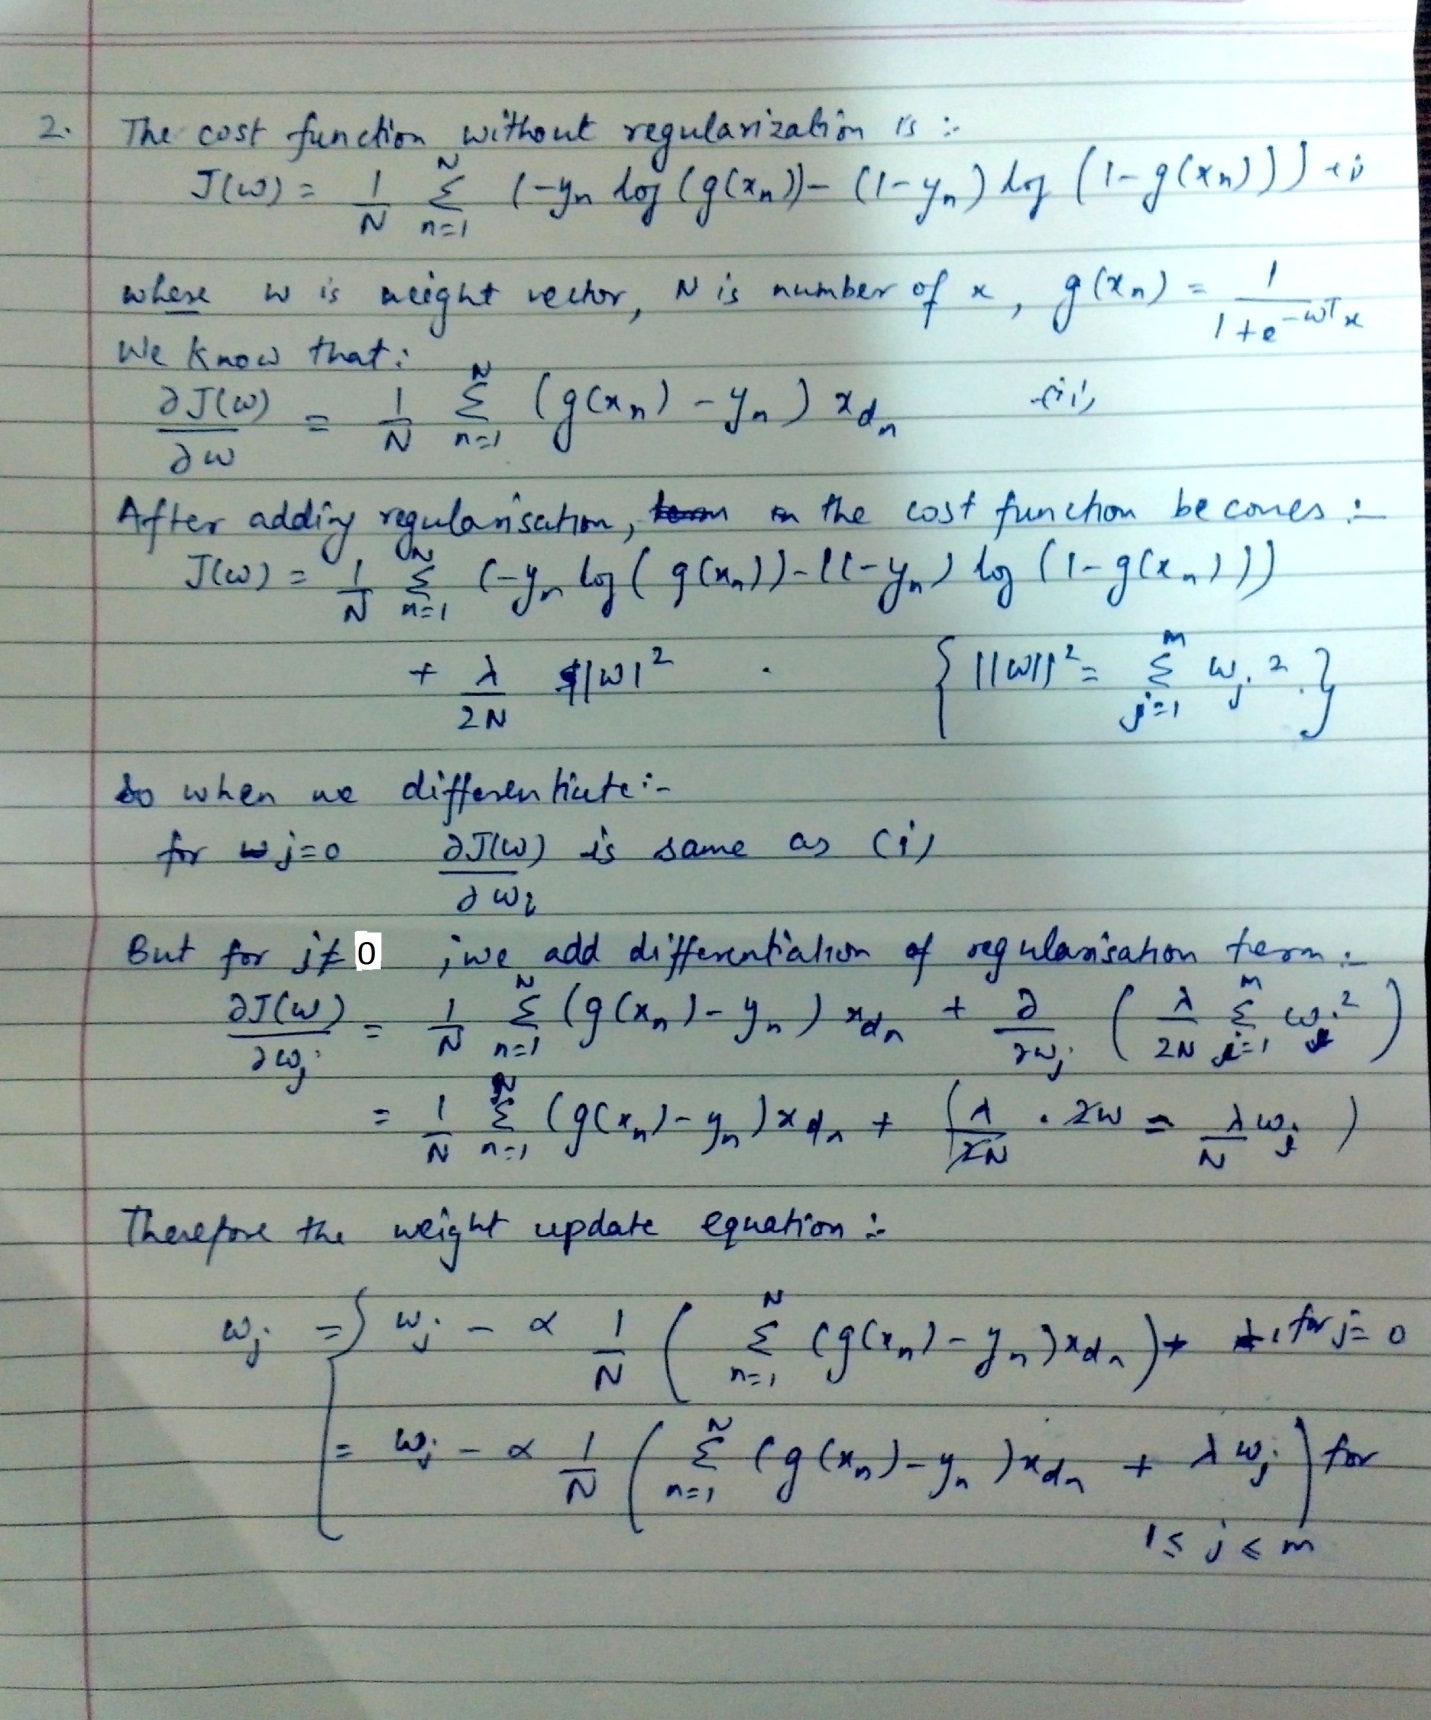 2. The cost function without regularization is :-
J(w) = 1/N Σ_{n=1}^{N} (-y_n log (g(x_n)) - (1-y_n) log (1-g(x_n))) -(i)
where w is weight vector, N is number of x, g(x_n) = 1/(1+e^{-w^T x})
We know that:
∂J(w)/∂w = 1/N Σ_{n=1}^{N} (g(x_n) - y_n) x_{d_n} -(ii)
After adding regularisation, the cost function becomes :-
J(w) = 1/N Σ_{n=1}^{N} (-y_n log (g(x_n)) - (1-y_n) log (1-g(x_n)))
+ λ/2N ||w|^2 . { ||w||^2 = Σ_{j=1}^{m} w_j^2. }
So when we differentiate :-
for j=0 ∂J(w)/∂w_i is same as (i)
But for j≠0 ; we add differentiation of regularisation term :-
∂J(w)/∂w_j = 1/N Σ_{n=1}^{N} (g(x_n) - y_n) x_{d_n} + ∂/∂w_j ( λ/2N Σ_{j=1}^{m} w_j^2 )
= 1/N Σ_{n=1}^{N} (g(x_n) - y_n) x_{d_n} + ( λ/2N . 2w = λ/N w_j )
Therefore the weight update equation :-
w_j = { w_j - α 1/N ( Σ_{n=1}^{N} (g(x_n) - y_n) x_{d_n} ) , for j=0
= w_j - α 1/N ( Σ_{n=1}^{N} (g(x_n) - y_n) x_{d_n} + λ w_j ) for
1 ≤ j ≤ m